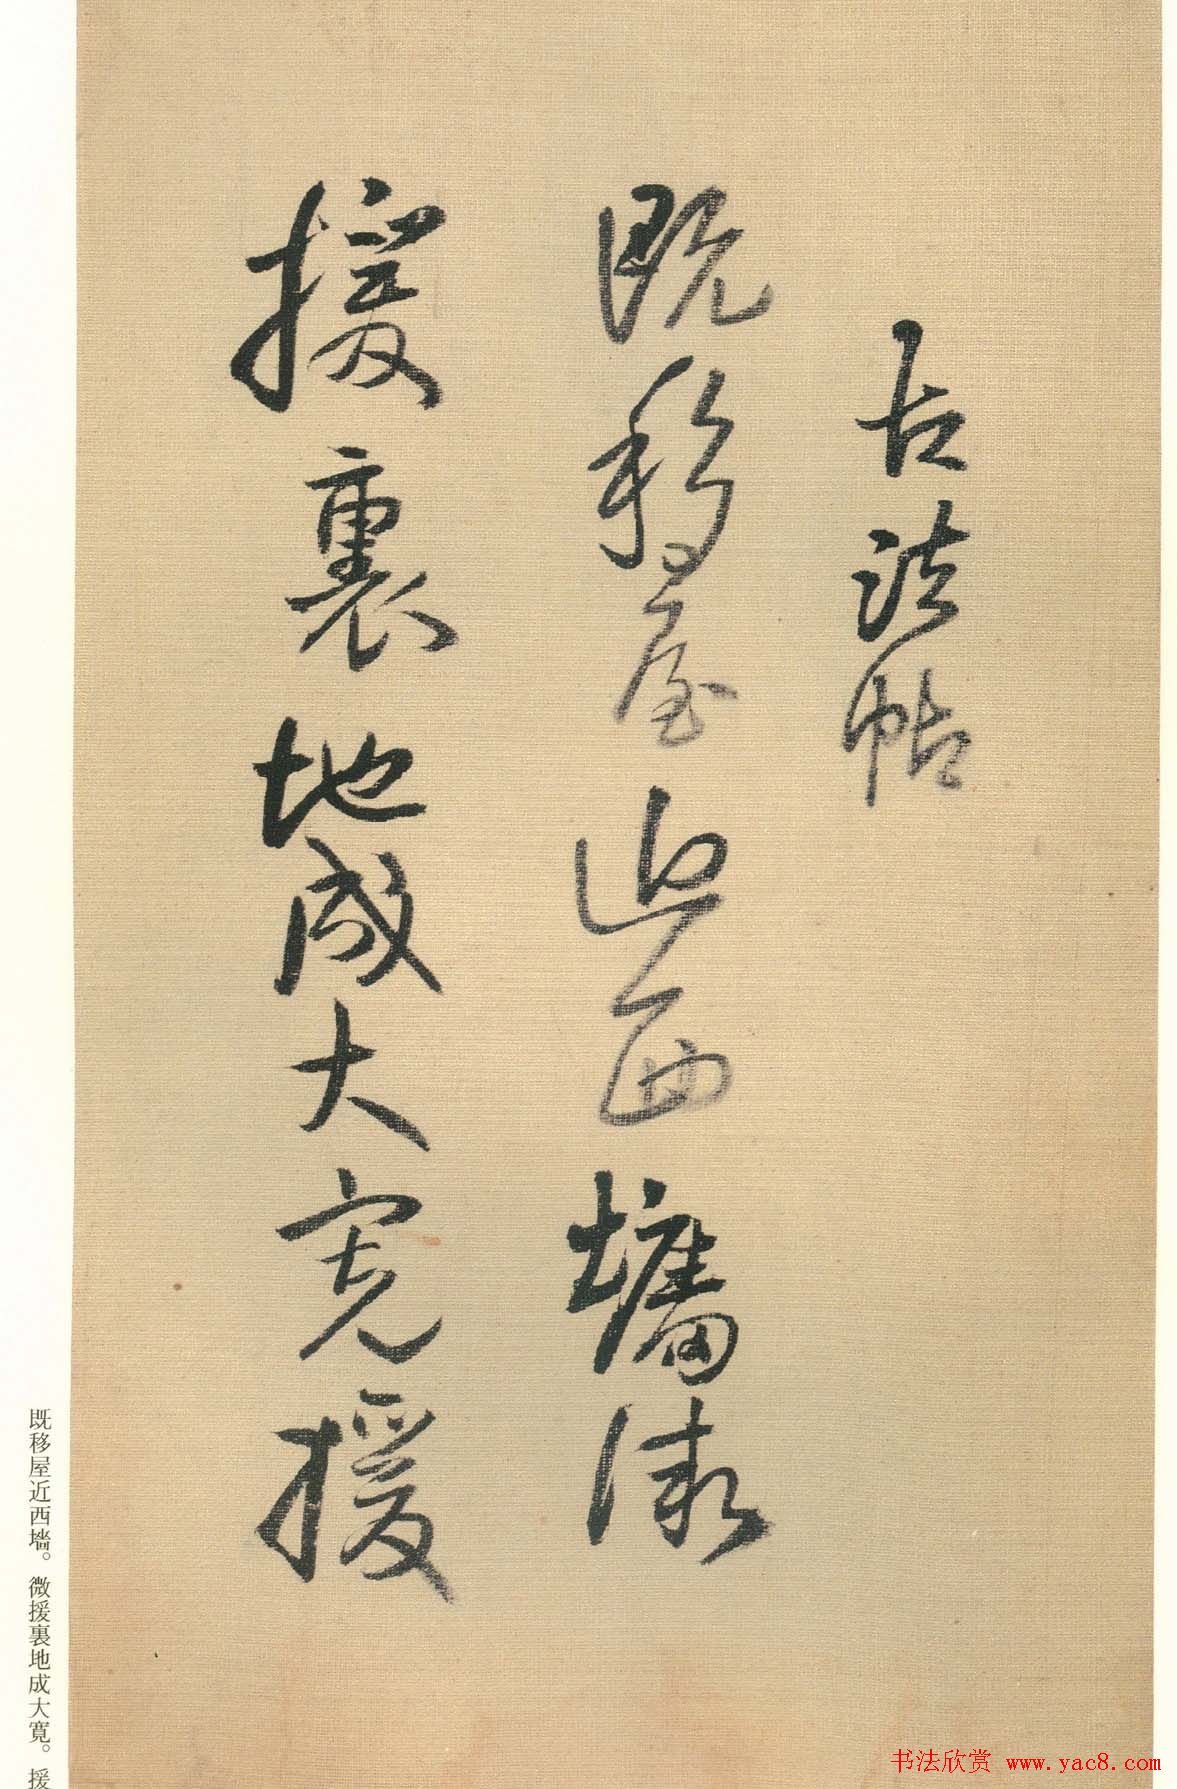 古法帖
既移屋近西墻微
援裏地成大寬援
既移屋近西墻。微援裏地成大寬。援
书法欣赏 www.yac8.com